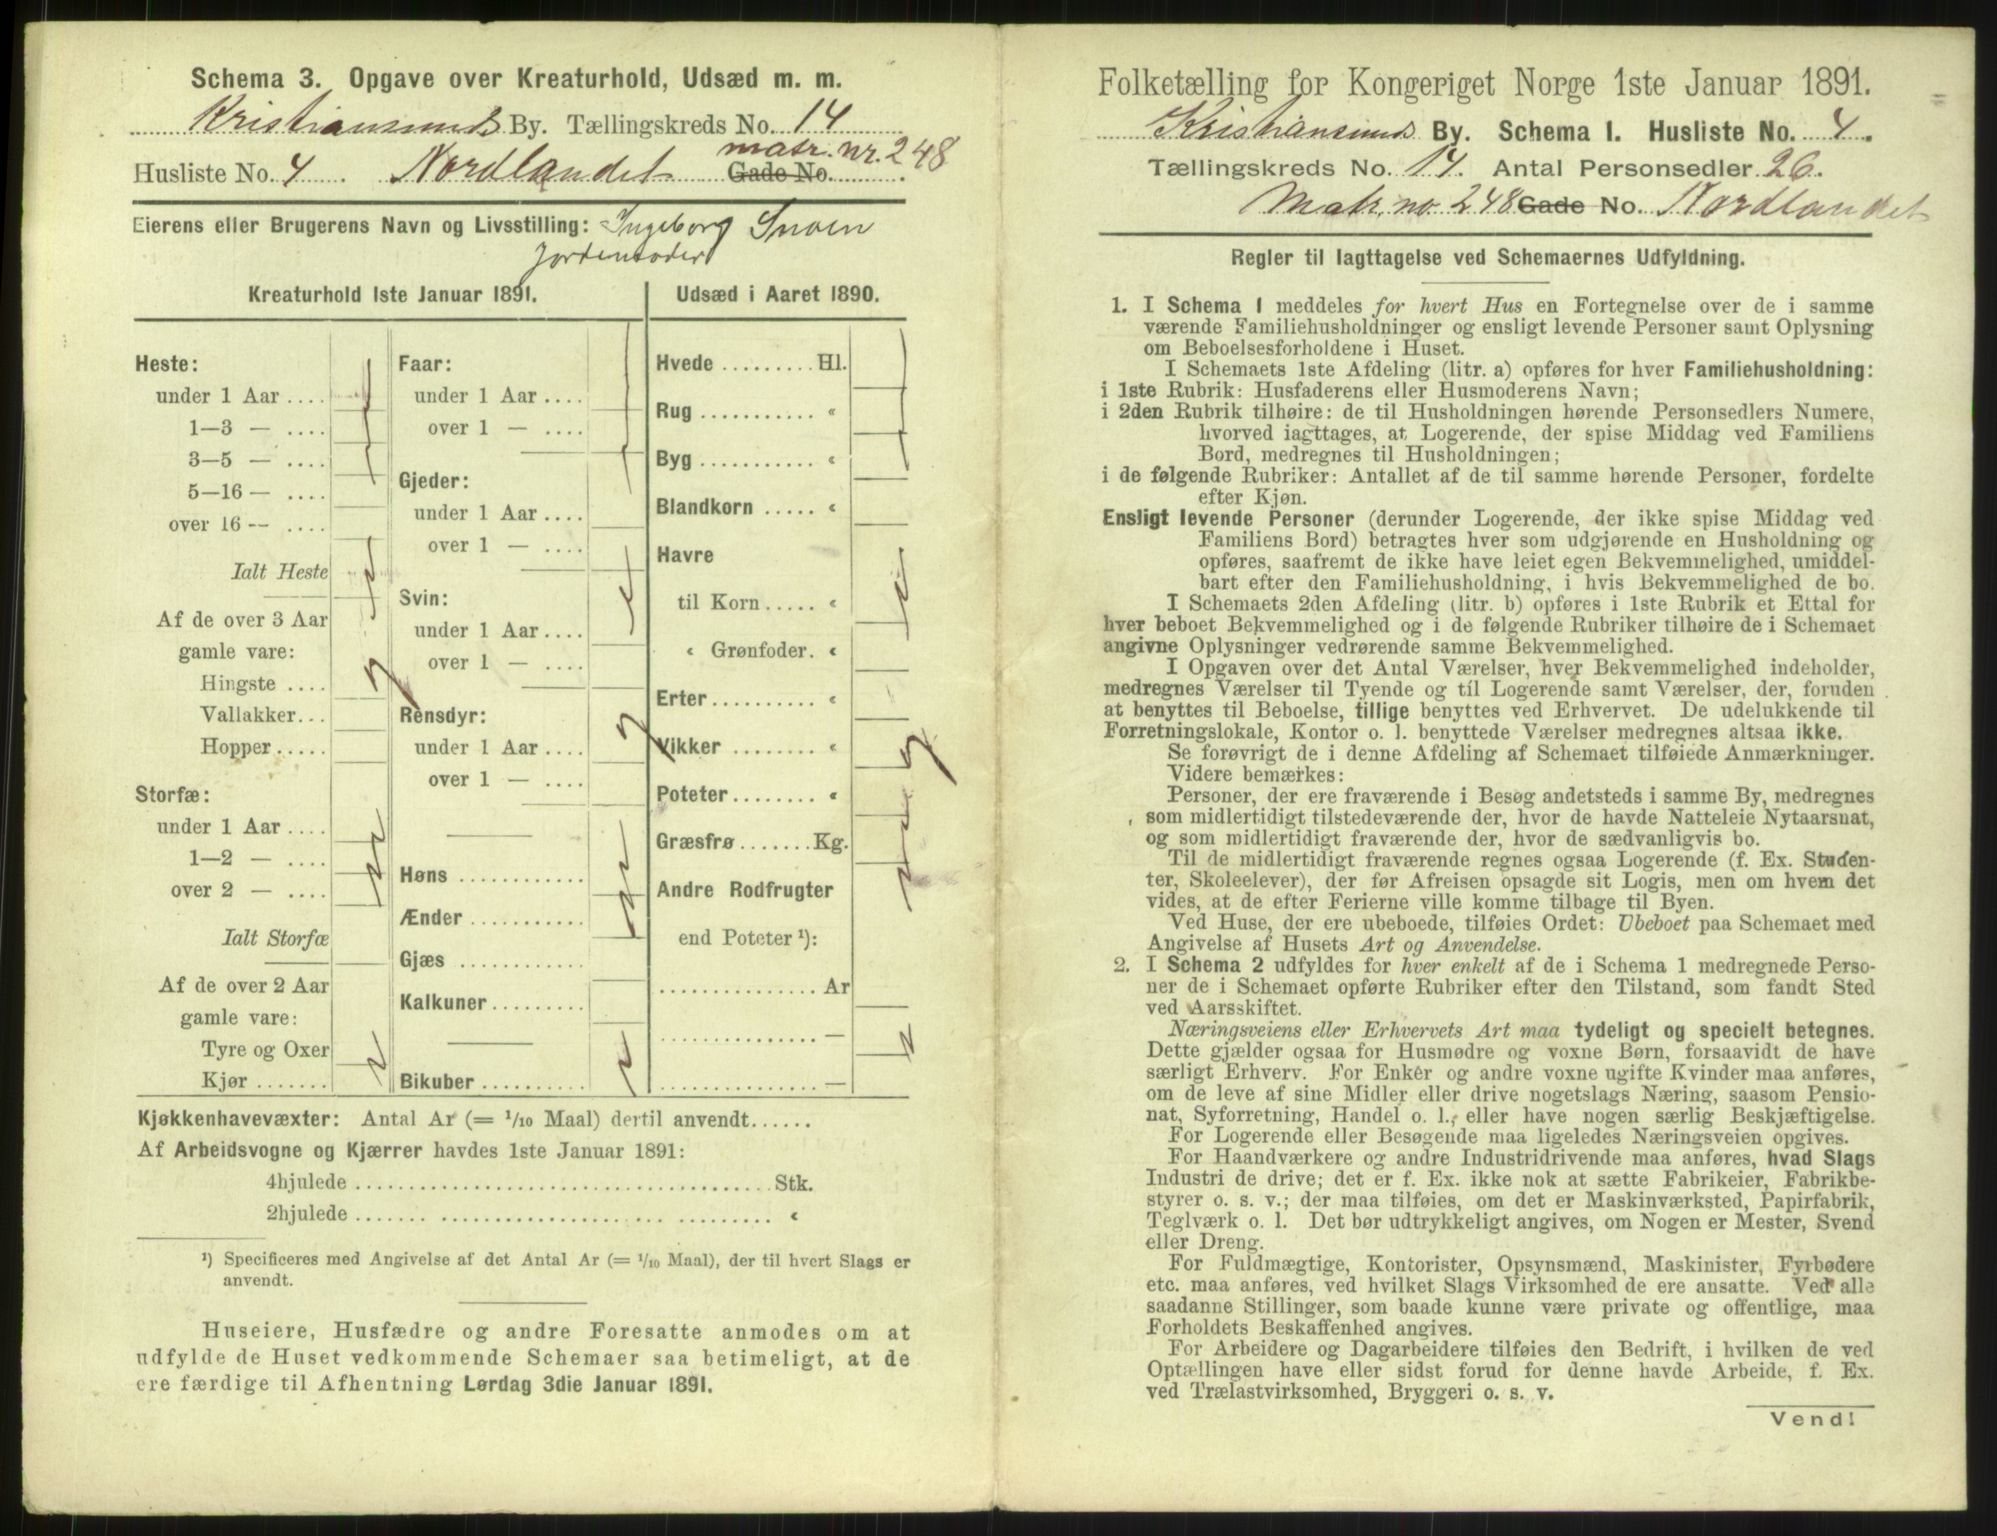 Schema 3. Opgave over Kreaturhold, Udsæd m. m.
Kristiansunds By. Tællingskreds No. 14
Husliste No. 4 Nordlandet matr. nr. 248 Gade No.
Eierens eller Brugerens Navn og Livsstilling: Ingeborg Snoen
Jordemoder
Kreaturhold 1ste Januar 1891.
Heste:
under 1 Aar ....
1—3 — ....
3—5 — ....
5—16 — ....
over 16 — ....
Ialt Heste
Af de over 3 Aar
gamle vare:
Hingste ....
Vallakker...
Hopper .....
Storfæ:
under 1 Aar ....
1—2 — ....
over 2 — ....
Ialt Storfæ
Af de over 2 Aar
gamle vare:
Tyre og Oxer
Kjør .......
Faar:
under 1 Aar ....
over 1 — ....
Gjeder:
under 1 Aar ....
over 1 — ....
Svin:
under 1 Aar ....
over 1 — ....
Rensdyr:
under 1 Aar ....
over 1 — ....
Høns ............
Ænder ...........
Gjæs ............
Kalkuner .........
Bikuber ..........
Udsæd i Aaret 1890.
Hvede ......... Hl.
Rug ........... «
Byg ........... «
Blandkorn ..... «
Havre
til Korn ..... «
« Grønfoder. «
Erter .......... «
Vikker ........ «
Poteter ........ «
Græsfrø ....... Kg.
Andre Rodfrugter
end Poteter ¹):
............... Ar
............... —
............... —
Kjøkkenhavevæxter: Antal Ar (= 1/10 Maal) dertil anvendt......
Af Arbeidsvogne og Kjærrer havdes 1ste Januar 1891:
4hjulede ........................................ Stk.
2hjulede ........................................ «
¹) Specificeres med Angivelse af det Antal Ar (= 1/10 Maal), der til hvert Slags er
anvendt.
Huseiere, Husfædre og andre Foresatte anmodes om at
udfylde de Huset vedkommende Schemaer saa betimeligt, at de
ere færdige til Afhentning Lørdag 3die Januar 1891.
Folketælling for Kongeriget Norge 1ste Januar 1891.
Kristiansunds By. Schema 1. Husliste No. 4.
Tællingskreds No. 14. Antal Personsedler 26.
Matr. no. 248 Gade No. Nordlandet
Regler til Iagttagelse ved Schemaernes Udfyldning.
1. I Schema 1 meddeles for hvert Hus en Fortegnelse over de i samme
værende Familiehusholdninger og ensligt levende Personer samt Oplysning
om Beboelsesforholdene i Huset.
I Schemaets 1ste Afdeling (litr. a) opføres for hver Familiehusholdning:
i 1ste Rubrik: Husfaderens eller Husmoderens Navn;
i 2den Rubrik tilhøire: de til Husholdningen hørende Personsedlers Numere,
hvorved iagttages, at Logerende, der spise Middag ved Familiens
Bord, medregnes til Husholdningen;
i de følgende Rubriker: Antallet af de til samme hørende Personer, fordelte
efter Kjøn.
Ensligt levende Personer (derunder Logerende, der ikke spise Middag ved
Familiens Bord) betragtes hver som udgjørende en Husholdning og
opføres, saafremt de ikke have leiet egen Bekvemmelighed, umiddel-
bart efter den Familiehusholdning, i hvis Bekvemmelighed de bo.
I Schemaets 2den Afdeling (litr. b) opføres i 1ste Rubrik et Ettal for
hver beboet Bekvemmelighed og i de følgende Rubriker tilhøire de i Schemaet
angivne Oplysninger vedrørende samme Bekvemmelighed.
I Opgaven over det Antal Værelser, hver Bekvemmelighed indeholder,
medregnes Værelser til Tyende og til Logerende samt Værelser, der, foruden
at benyttes til Beboelse, tillige benyttes ved Erhvervet. De udelukkende til
Forretningslokale, Kontor o. l. benyttede Værelser medregnes altsaa ikke.
Se forøvrigt de i denne Afdeling af Schemaet tilføiede Anmærkninger.
Videre bemærkes:
Personer, der ere fraværende i Besøg andetsteds i samme By, medregnes
som midlertidigt tilstedeværende der, hvor de havde Natteleie Nytaarsnat,
og som midlertidigt fraværende der, hvor de sædvanligvis bo.
Til de midlertidigt fraværende regnes ogsaa Logerende (f. Ex. Studen-
ter, Skoleelever), der før Afreisen opsagde sit Logis, men om hvem det
vides, at de efter Ferierne ville komme tilbage til Byen.
Ved Huse, der ere ubeboede, tilføies Ordet: Ubeboet paa Schemaet med
Angivelse af Husets Art og Anvendelse.
2. I Schema 2 udfyldes for hver enkelt af de i Schema 1 medregnede Perso-
ner de i Schemaet opførte Rubriker efter den Tilstand, som fandt Sted
ved Aarsskiftet.
Næringsveiens eller Erhvervets Art maa tydeligt og specielt betegnes.
Dette gjælder ogsaa for Husmødre og voxne Børn, forsaavidt de have
særligt Erhverv. For Enker og andre voxne ugifte Kvinder maa anføres,
om de leve af sine Midler eller drive nogetslags Næring, saasom Pensio-
nat, Syforretning, Handel o. l., eller have nogen særlig Beskjæftigelse.
For Logerende eller Besøgende maa ligeledes Næringsveien opgives.
For Haandværkere og andre Industridrivende maa anføres, hvad Slags
Industri de drive; det er f. Ex. ikke nok at sætte Fabrikeier, Fabrikbe-
styrer o. s. v.; der maa tilføies, om det er Maskinværksted, Papirfabrik,
Teglværk o. l. Det bør udtrykkeligt angives, om Nogen er Mester, Svend
eller Dreng.
For Fuldmægtige, Kontorister, Opsynsmænd, Maskinister, Fyrbødere
etc. maa anføres, ved hvilket Slags Virksomhed de ere ansatte. Ved alle
saadanne Stillinger, som baade kunne være private og offentlige, maa
Forholdets Beskaffenhed angives.
For Arbeidere og Dagarbeidere tilføies den Bedrift, i hvilken de ved
Optællingen have eller sidst forud for denne havde Arbeide, f. Ex.
ved Trælastvirksomhed, Bryggeri o. s. v.
Vend!